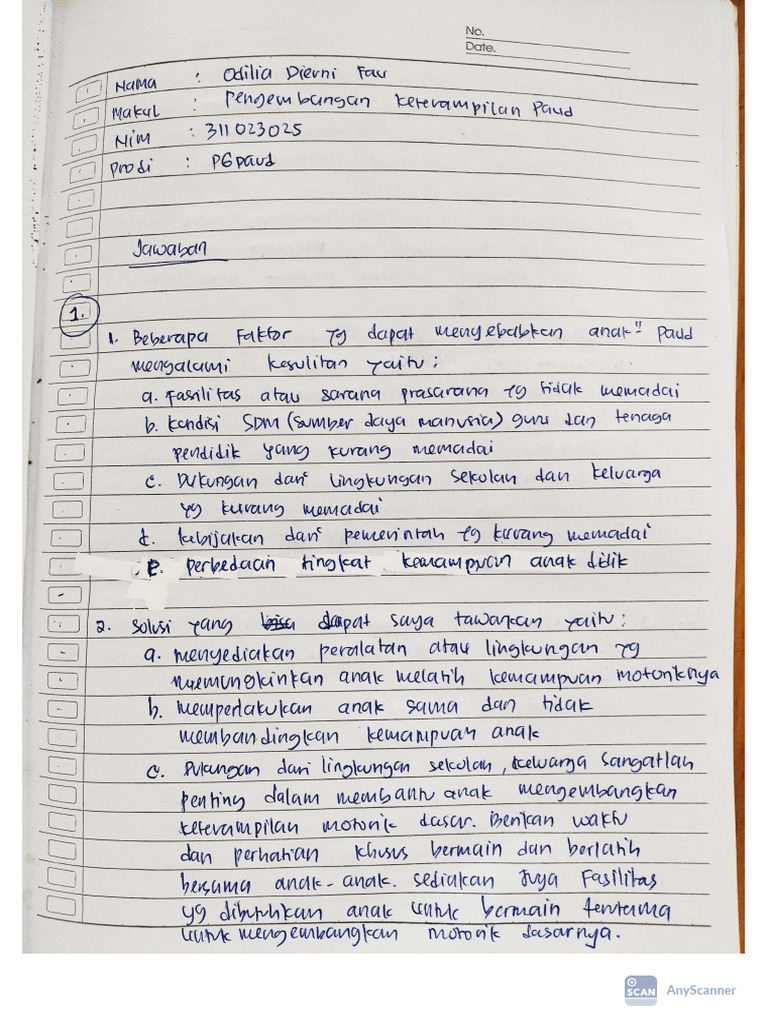 No.
Date.
Nama : Odilia Dierni Fau
Makul : Pengembangan keterampilan Paud
Nim : 311023025
Prodi : PGpaud
Jawaban
1.
1. Beberapa Faktor yg dapat menyebabkan anak" Paud
mengalami kesulitan yaitu :
a. Fasilitas atau sarana prasarana yg tidak memadai
b. kondisi SDM (sumber daya manusia) guru dan tenaga
pendidik yang kurang memadai
c. Dukungan dari lingkungan sekolah dan keluarga
yg kurang memadai
d. kebijakan dari pemerintah yg kurang memadai
e. perbedaan tingkat kemampuan anak didik
2. Solusi yang dapat saya tawarkan yaitu :
a. menyediakan peralatan atau lingkungan yg
memungkinkan anak melatih kemampuan motoriknya
b. memperlakukan anak sama dan tidak
membandingkan kemampuan anak
c. Dukangan dari lingkungan sekolah, keluarga sangatlah
penting dalam membantu anak mengembangkan
keterampilan motorik dasar. Berikan waktu
dan perhatian khusus bermain dan berlatih
bersama anak-anak. sediakan juga Fasilitas
yg dibutuhkan anak untuk bermain terutama
untuk mengembangkan motorik dasarnya.
SCAN AnyScanner